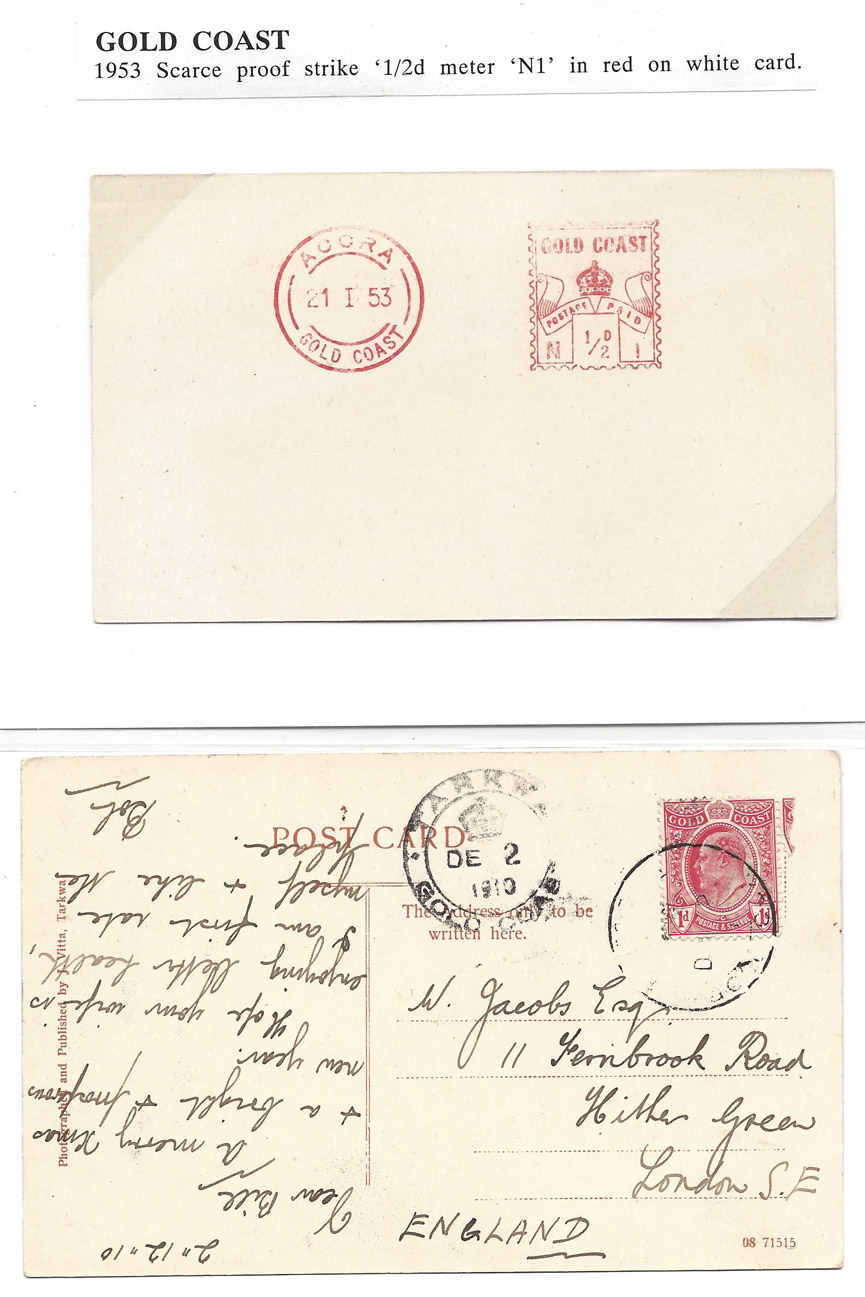 GOLD COAST
1953 Scarce proof strike ‘1/2d meter ‘N1’ in red on white card.
ACCRA
21 I 53
GOLD COAST
GOLD COAST
POSTAGE PAID
N 1/2D 1
POST CARD
TARKWA
DE 2
1910
GOLD COAST
GOLD COAST
1d POSTAGE & 1d
The Address only to be
written here.
W. Jacobs Esq.
11 Fernbrook Road
Hither Green
London S.E
ENGLAND
08 71515
Photographed and Published by J. Vitta, Tarkwa
2"12"10
Dear Bill
A merry Xmas
+ a bright + prosperous
new year.
Hope your wife is
enjoying better health,
I am first rate
myself + like the
place
Bob